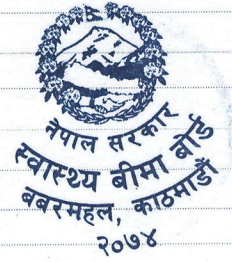 नेपाल सरकार
स्वास्थ्य बीमा बोर्ड
बबरमहल, काठमाडौं
२०७४